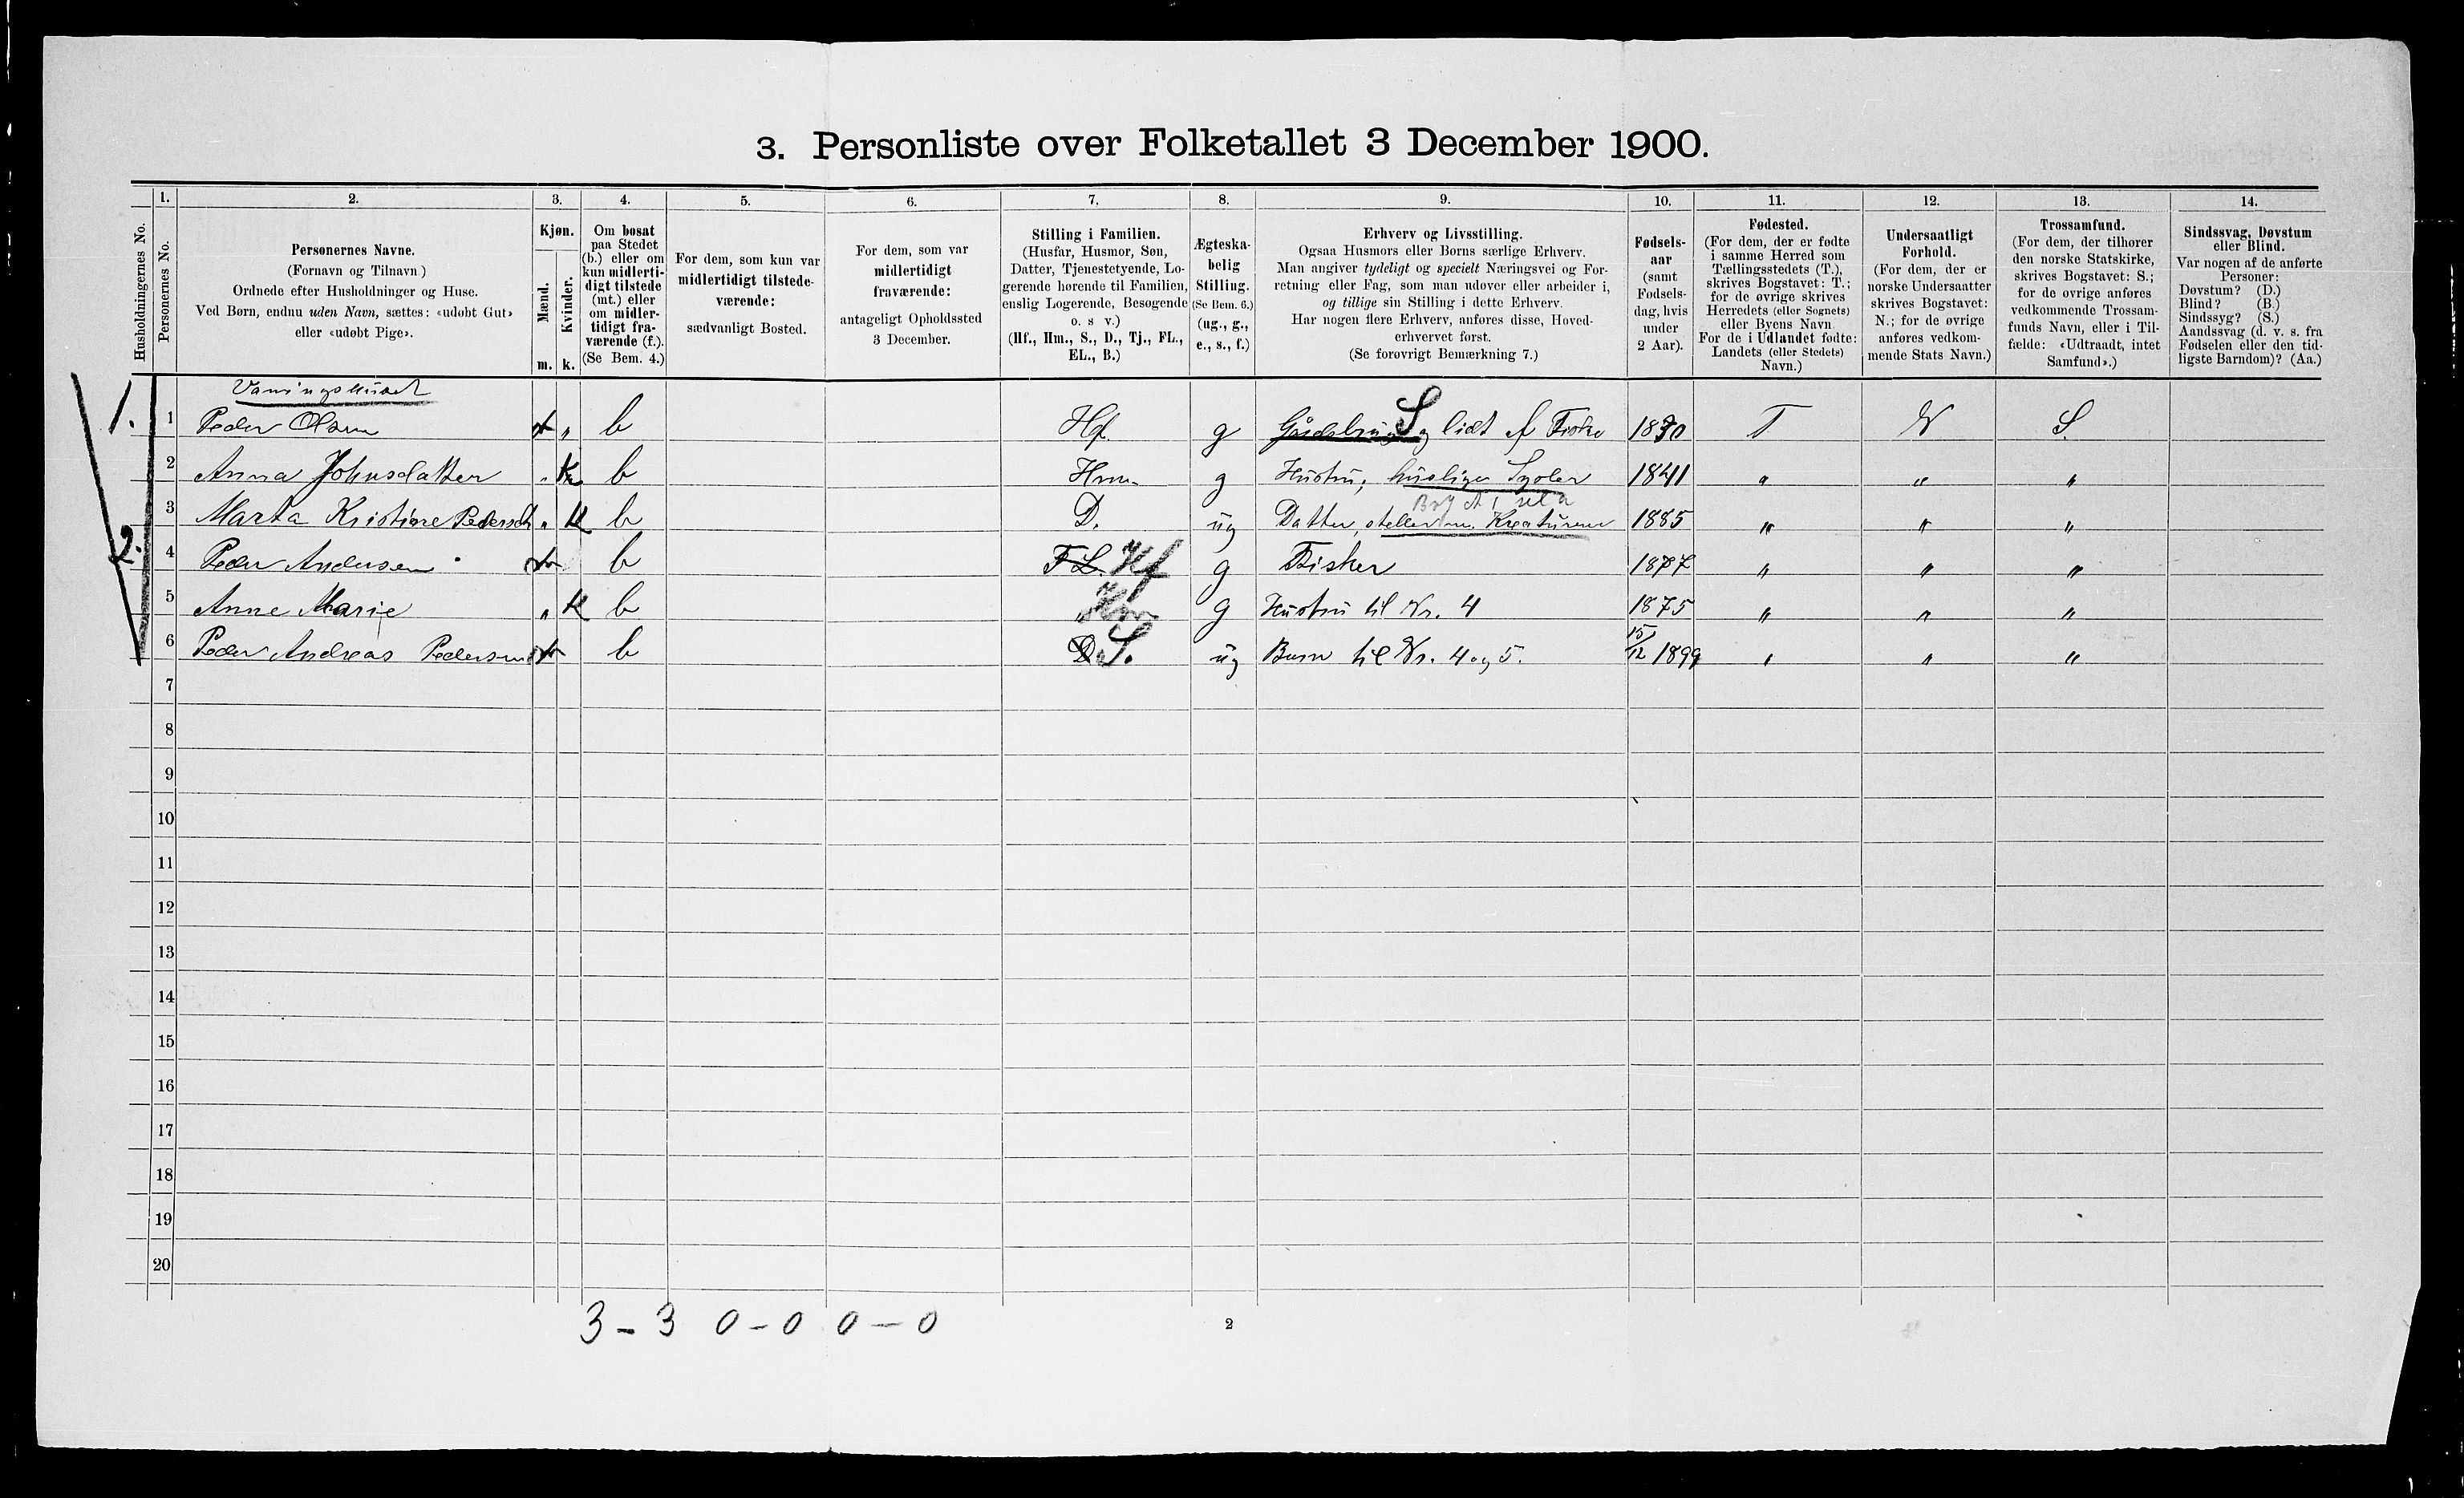 3. Personliste over Folketallet 3 December 1900.
Husholdningernes No.
1.
Personernes No.
2.
Personernes Navne.
(Fornavn og Tilnavn)
Ordnede efter Husholdninger og Huse.
Ved Børn, endnu uden Navn, sættes: «udøbt Gut»
eller «udøbt Pige».
3.
Kjøn.
Mænd.
Kvinder.
m. k.
4.
Om bosat
paa Stedet
(b.) eller om
kun midlerti-
digt tilstede
(mt.) eller
om midler-
tidigt fra-
værende (f.).
(Se Bem. 4.)
5.
For dem, som kun var
midlertidigt tilstede-
værende:
sædvanligt Bosted.
6.
For dem, som var
midlertidigt
fraværende:
antageligt Opholdssted
3 December.
7.
Stilling i Familien.
(Husfar, Husmor, Søn,
Datter, Tjenestetyende, Lo-
gerende hørende til Familien,
enslig Logerende, Besøgende
o. s v.)
(Hf., Hm., S., D., Tj., FL.,
EL., B.)
8.
Ægteska-
belig
Stilling.
(Se Bem. 6.)
(ug., g.,
e., s., f.)
9.
Erhverv og Livsstilling.
Ogsaa Husmors eller Børns særlige Erhverv.
Man angiver tydeligt og specielt Næringsvei og For-
retning eller Fag, som man udøver eller arbeider i,
og tillige sin Stilling i dette Erhverv.
Har nogen flere Erhverv, anføres disse, Hoved-
erhvervet først.
(Se forøvrigt Bemærkning 7.)
10.
Fødsels-
aar
(samt
Fødsels-
dag, hvis
under
2 Aar).
11.
Fødested.
(For dem, der er fødte
i samme Herred som
Tællingsstedets (T.),
skrives Bogstavet: T.;
for de øvrige skrives
Herredets (eller Sognets)
eller Byens Navn
For de i Udlandet fødte:
Landets (eller Stedets)
Navn.)
12.
Undersaatligt
Forhold.
(For dem, der er
norske Undersaatter
skrives Bogstavet:
N.; for de øvrige
anføres vedkom-
mende Stats Navn.)
13.
Trossamfund.
(For dem, der tilhører
den norske Statskirke,
skrives Bogstavet: S.;
for de øvrige anføres
vedkommende Trossam-
funds Navn, eller i Til-
fælde: «Udtraadt, intet
Samfund».)
14.
Sindssvag, Døvstum
eller Blind.
Var nogen af de anførte
Personer:
Døvstum? (D.)
Blind? (B.)
Sindssyg? (S.)
Aandssvag (d. v. s. fra
Fødselen eller den tid-
ligste Barndom)? (Aa.)
Vaaningshuset
1. 1 Peder Olsen " b Hf. g Gårdsbruger S og lidt af Fiske 1830 T N S.
2 Anna Johnsdatter " K b Hm. g Hustru, huslige Sysler 1841 " " "
3 Marta Kristine Pedersdt " K b D. ug Datter, steller m. Kreaturene 1885 " " "
2. 4 Peder Andersen b FL. Hf g Fisker 1877 " " "
5 Anne Marie " K b " Hm g Hustru til Nr. 4 1875 " " "
6 Peder Andreas Pedersen b D S. ug Barn til Nr. 4 og 5. 15/12 1899 " " "
7
8
9
10
11
12
13
14
15
16
17
18
19
20
3 - 3 0 - 0 0 - 0
2